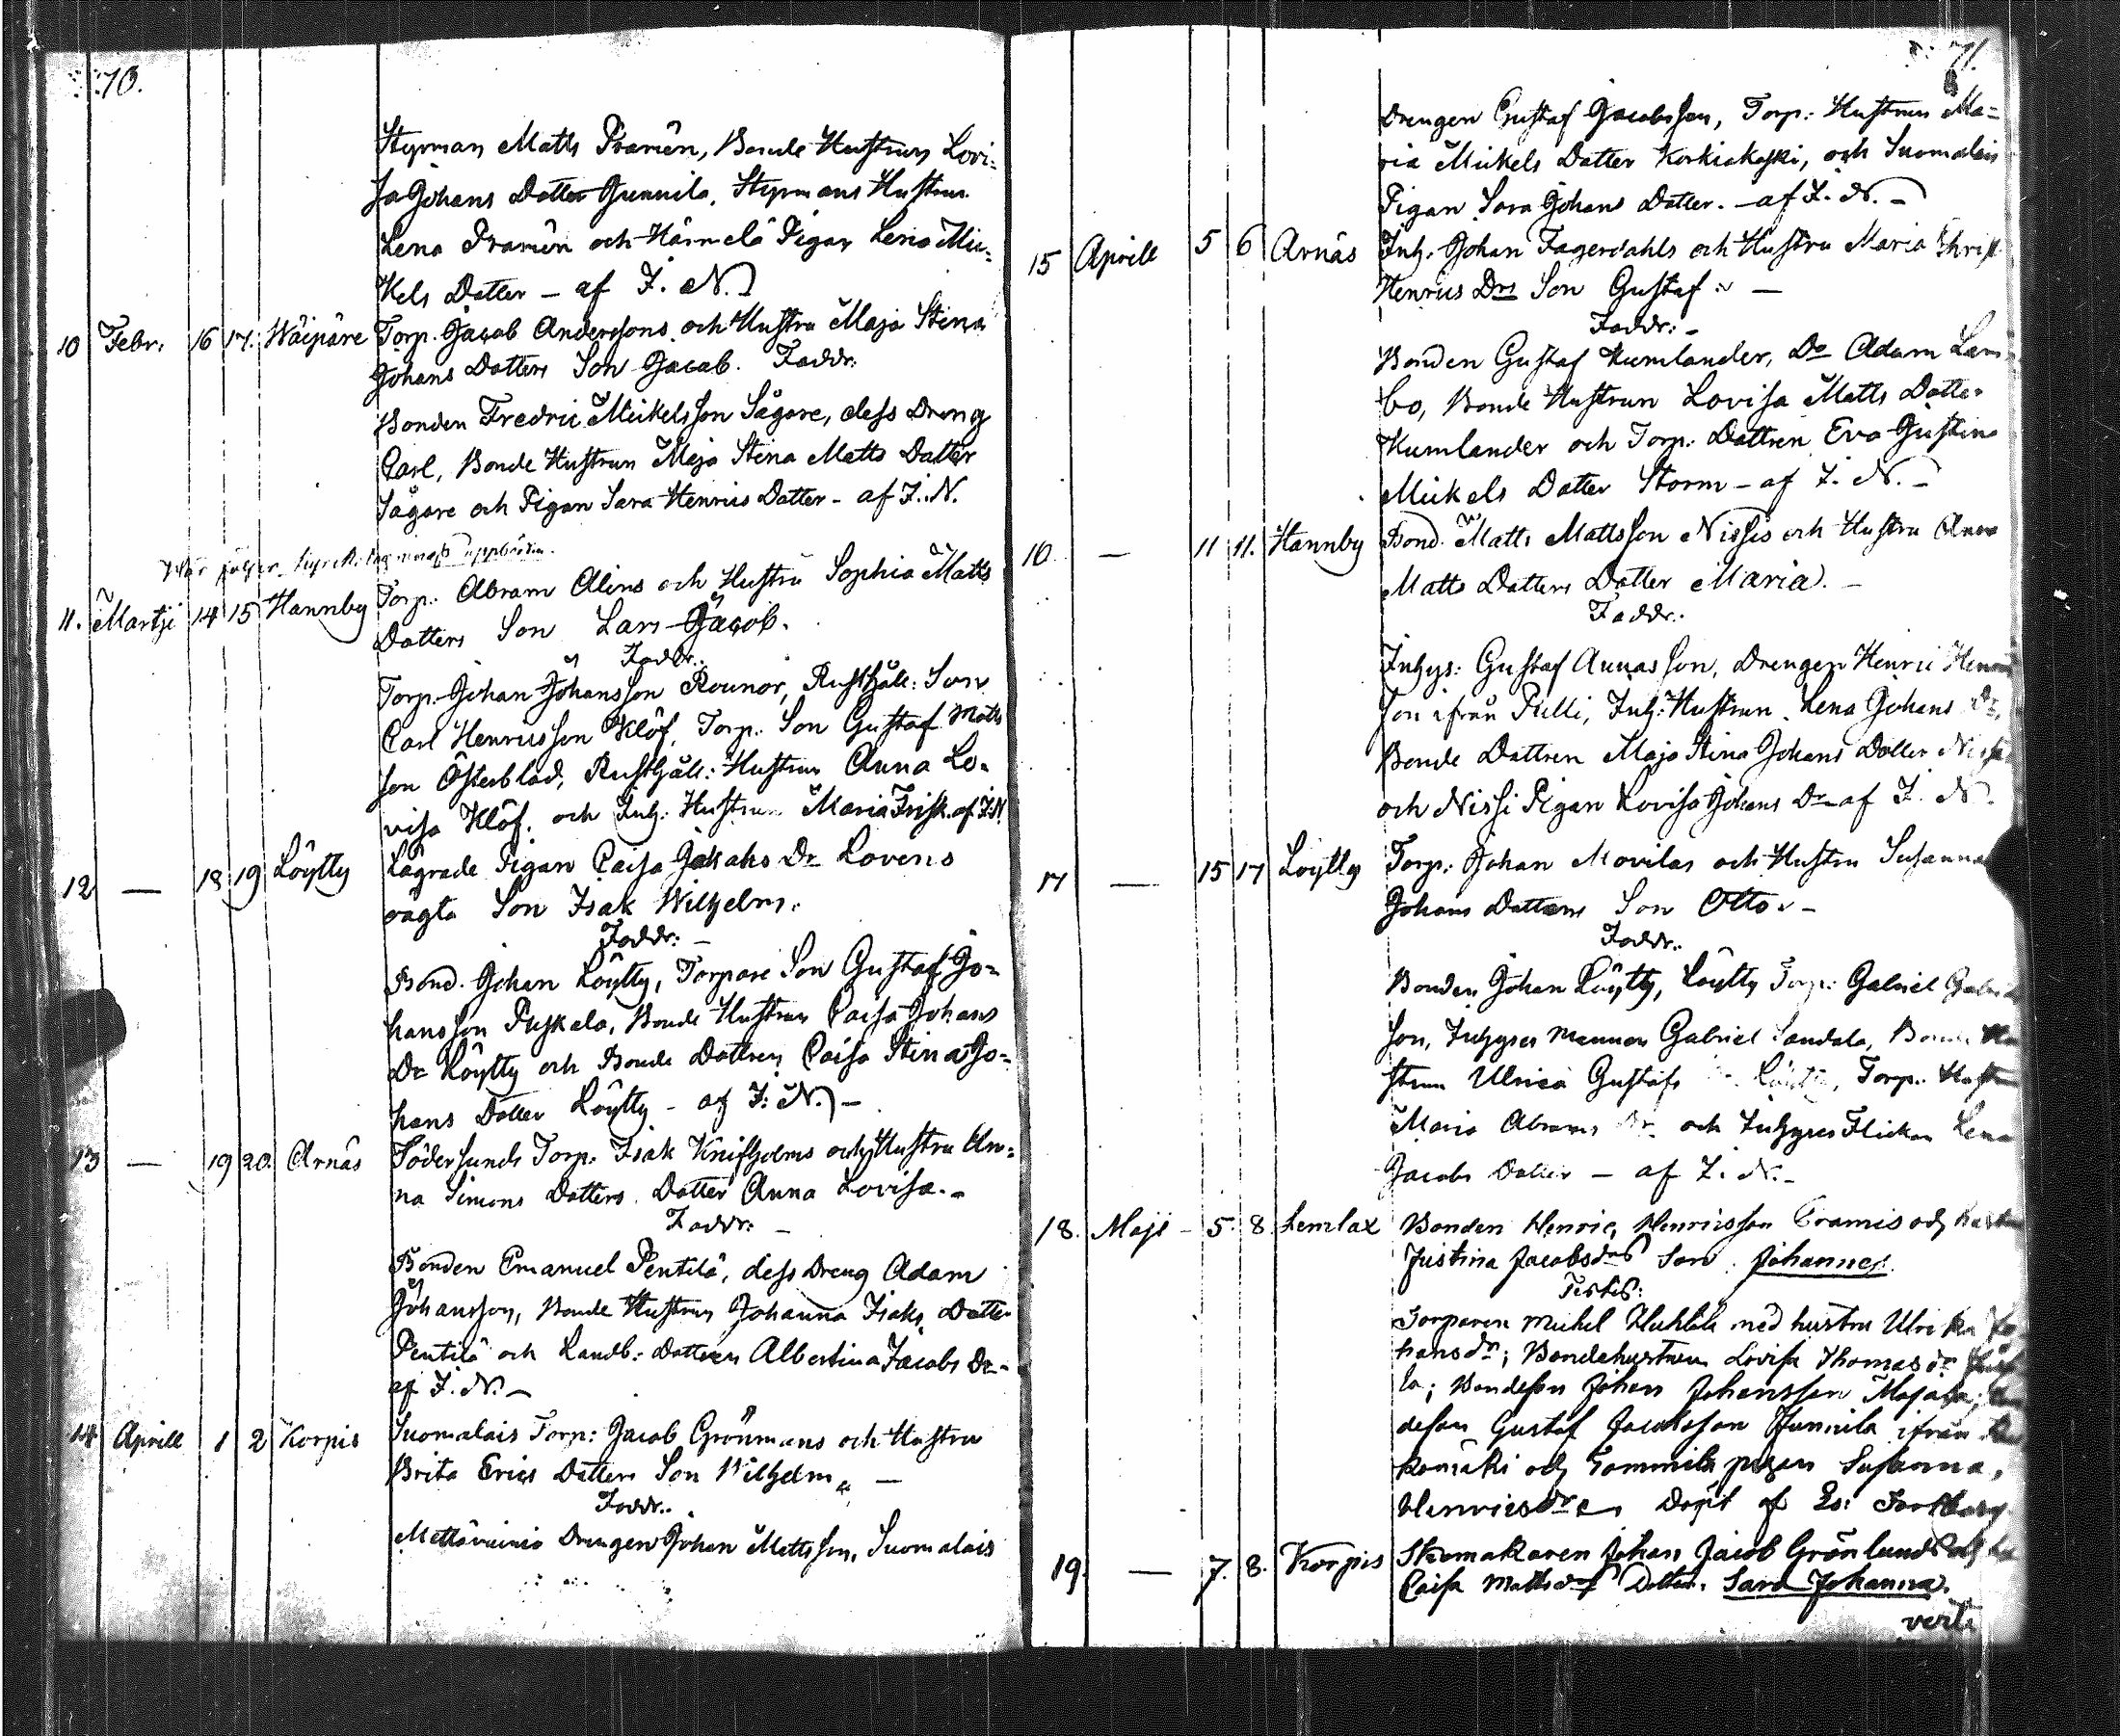 70.
Styrman Matts Pramên, Bonde Hustrun Lovi=
sa Johans Datter Gunnila, Styrmans Hustrun
Lena Pramên och Härmelä Pigan Lena Mic=
kels Datter – af I. N.
10 Febr. 16 17. Wäipäre Torp. Jacob Anderssons och Hustru Maja Stina
Johans Datters Son Jacob. Faddr:
Bonden Fredric Mickelsson Sågare, dess Dreng
Carl, Bonde Hustrun Maja Stina Matts Datter
Sågare och Pigan Sara Henrics Datter – af I. N.
Torp. Abram Alens och Hustru Sophia Matts
11. Martji 14 15 Hannby
Datters Son Lars Jacob.
Faddr:
Torp. Johan Johansson Rounor, Rusthåll: Son
Carl Henricsson Klöf, Torp. Son Gustaf Matts
son Österblad, Rusthåll: Hustrun Anna Lo=
visa Klöf. och Inh. Hustrun Maria Frisk. af I. N.
12 — 18 19 Löytty Lägrade Pigan Caisa Jakobs Dr Lovens
oägta Son Isak Wilhelm.
Faddr: –
Bond. Johan Löytty, Torpare Son Gustaf Jo=
hansson Puskala, Bonde Hustrun Caisa Johans
Dr Löytty och Bonde Dottren Caisa Stina Jo=
hans Datter Löytty – af I: N. –
13 — 19 20. Arnäs Södersunds Torp. Isak Knifholms och Hustru An=
na Simons Datters. Datter Anna Lovisa. –
Faddr: –
Bonden Emanuel Pentilä, dess Dreng Adam
Johansson, Bonde Hustrun Johanna Isaks Datter
Pentilä och Landb: dottren Albertina Jacobs Dr –
af I. N. –
14 Aprill 1 2 Korpis Suomalais Torp: Jacob Grönmans och Hustru
Brita Erics Datters Son Wilhelm. —
Faddr.
Mettävainio Drengen Johan Mattsson, Suomalais
71.
Drengen Gustaf Jacobsson, Torp: Hustrun Ma=
ria Mickels Datter Korkiakoski, och Suomalais
Pigan Sara Johans Datter. – af I. N. –
15 Aprill 5 6 Arnäs Inh. Johan Fagerdahls och Hustru Maria Christ
Henrics Drs Son Gustaf. —
Faddr: –
Bonden Gustaf Kumlander, Do Adam Lam
bo, Bonde Hustrun Lovisa Matts Datter
Kumlander och Torp: Dottren Eva Gustina
Mickels Datter Storm – af I. N. –
16 — 11 11. Hannby Bond. Matts Mattsson Nissis och Hustru Anna
Matts Datters Datter Maria. –
Faddr:
Inhys: Gustaf Annasson, Drengen Henric Henric
son ifrån Pulli, Inh: Hustrun Lena Johans Dr,
Bonde Dottren Maja Stina Johans Datter Nissi
och Nissi Pigan Lovisa Johans Dr af I. N.
17 — 15 17 Löytty Torp: Johan Movilas och Hustru Susanna
Johans Datters Son Otto. –
Faddr:
Bonden Johan Löytty, Löytty Torp: Gabriel
son, Inhyses Mannen Gabriel Sandala, Bonde
strun Ulrica Gustafs Löytty, Torp. Hustrun
Maria Abrams Dr och Inhyses Flickan Lena
Jacobs Datter – af I. N. –
18. Maji – 5. 8. Lemlax Bonden Henric Henricsson Cramis och hustru
Justina Jacobsdrs Son. Johannes.
Testes:
Torparen Michel Huhtala med hustru Ulrika Jo
hansdr; Bondehustrun Lovisa Thomasdr
la; Bondeson Johan Johansson Majala;
deson Gustaf Jacobsson Junnila ifrån
komäki och Tommila pigan Susanna,
Henricsdr Döpt af
19. — 7. 8. Korpis Skomakaren Johan Jacob Grönlunds och
Caisa Mattsdrs Dotter. Sara Johanna.
verte